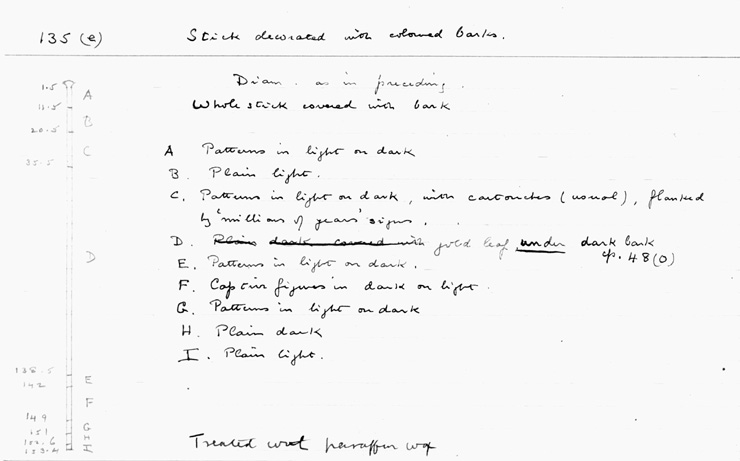 135 (e) Stick decorated with coloured barks.
Diam. as in preceding.
Whole stick covered with bark
A Patterns in light on dark
B. Plain light.
C. Patterns in light on dark, with cartouches (usual), flanked
by 'millions of years' signs.
D. Plain dark covered with gold leaf under dark bark
cp. 48(o)
E. Patterns in light on dark.
F. Captive figures in dark on light.
G. Patterns in light on dark
H. Plain dark
I. Plain light.
Treated with paraffin wax
1.5
A
11.5
B
20.5
C
35.5
D
138.5
E
142
F
149
G
151
H
152.6
I
153.4